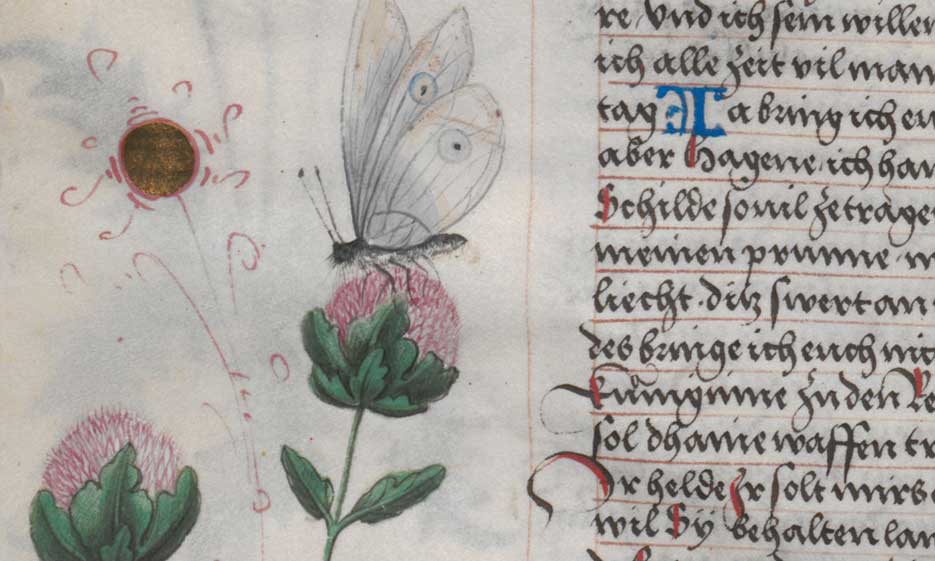 re · Vnd ich sein willen
ich alle zeit vil man
tag Ja bring ich eu
aber Hagene · ich han
Schilde souil zetrage
meinen prunne · 
liecht · ditz swert an
des bringe ich euch nic
Kuniginne zu den Re
sol dhaine waffen tr
Ir helde Ir solt mirs
wil Sy behalten lan